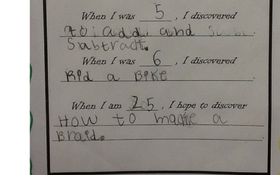 When I was 5, I discovered
to add and
Subtract.
When I was 6, I discovered
Rid a Bike
When I am 25, I hope to discover
How to make a
Braid.